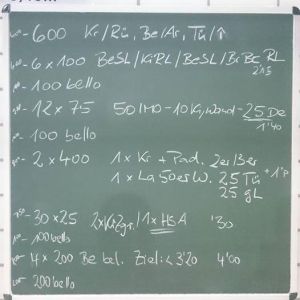 600 Kr/Rü, Be/Ar, Tü/↑
6 x 100 BeSL/KiRL/BeSL/BrBe RL
2'15
100 bello
12 x 75 50 - 10 - 25 De
1'40
100 bello
2 x 400 1x Kr + Pad. 2er/3er
1 x La 50er W. 25 Tü + 1'P
25 gL
30 x 25 /1x HSA '30
100 bello
4 x 200 Be bel. Ziel: <3'20 4'00
200 bello